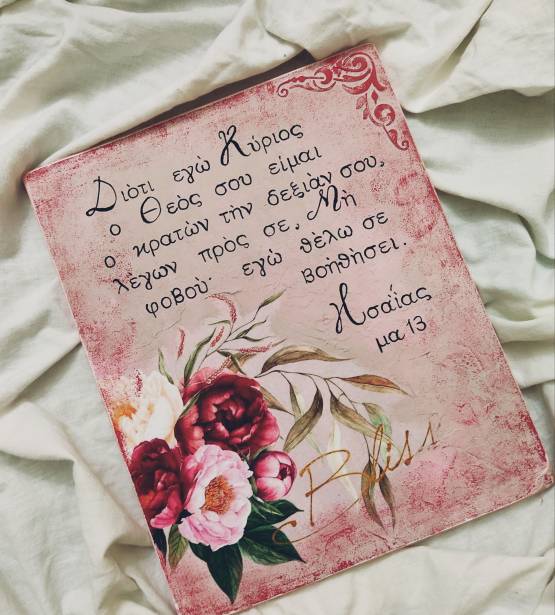 Διότι εγὼ Κύριος
ο Θεὸς σου είμαι
ο κρατὼν τὴν δεξιὰν σου,
λέγων πρὸς σε, Μὴ
φοβοὺ· εγὼ θέλω σε
βοήθήσει.
Ησαΐας
μα 13
Bliss